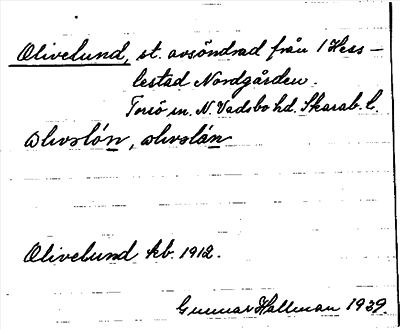 Olivelund, st. avsöndrad från 1 Hess-
lestad Nordgården.
Torsö sn. N. Vadsbo hd. Skarab. l.
Olivelund kb. 1912.
Gunnar Hallman 1939.